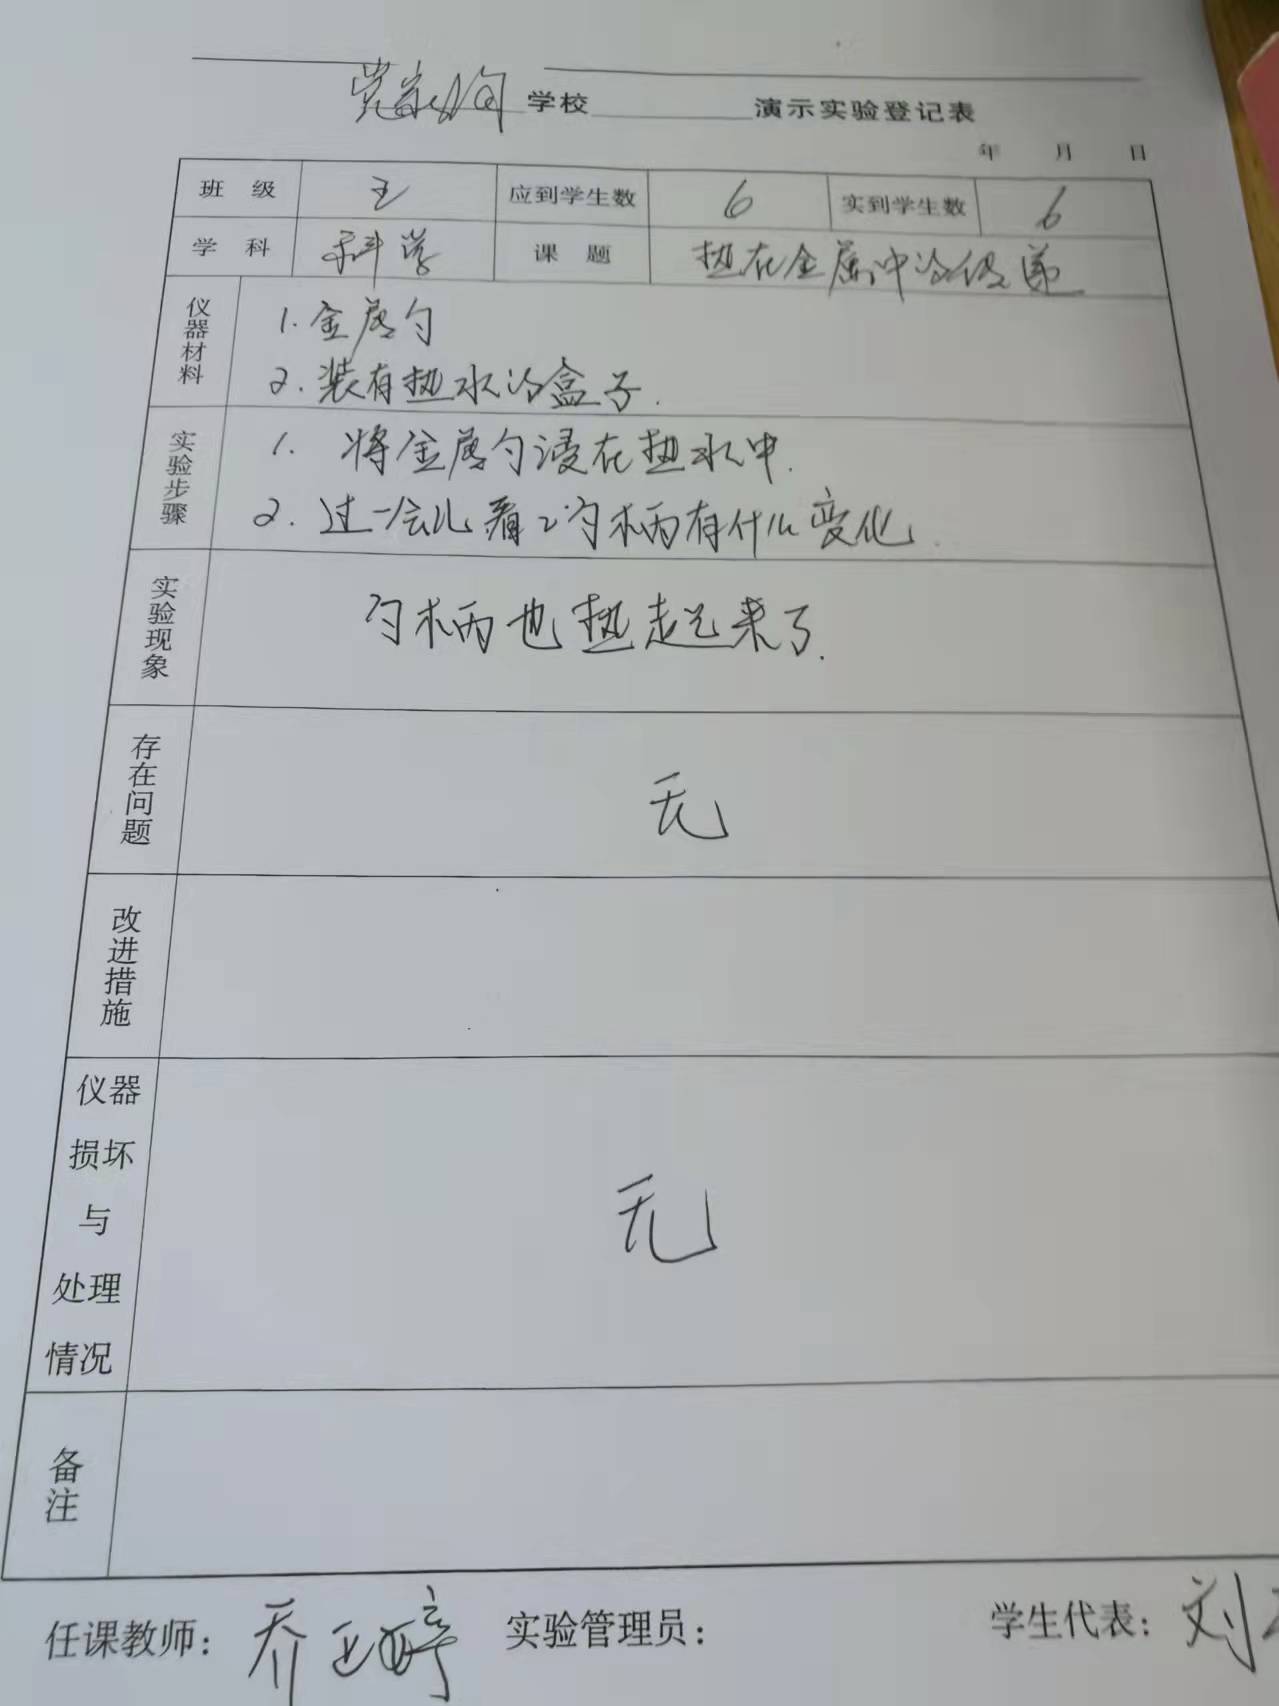 党家沟学校 演示实验登记表
年 月 日
班 级 五 应到学生数 6 实到学生数 6
学 科 科学 课 题 热在金属中的传递
仪器材料
1.金属勺
2.装有热水的盒子.
实验步骤
1. 将金属勺浸在热水中.
2. 过一会儿看看勺柄有什么变化.
实验现象
勺柄也热起来了.
存在问题
无
改进措施
仪器
损坏
与
处理
情况
无
备注
任课教师: 乔 实验管理员: 学生代表: 刘